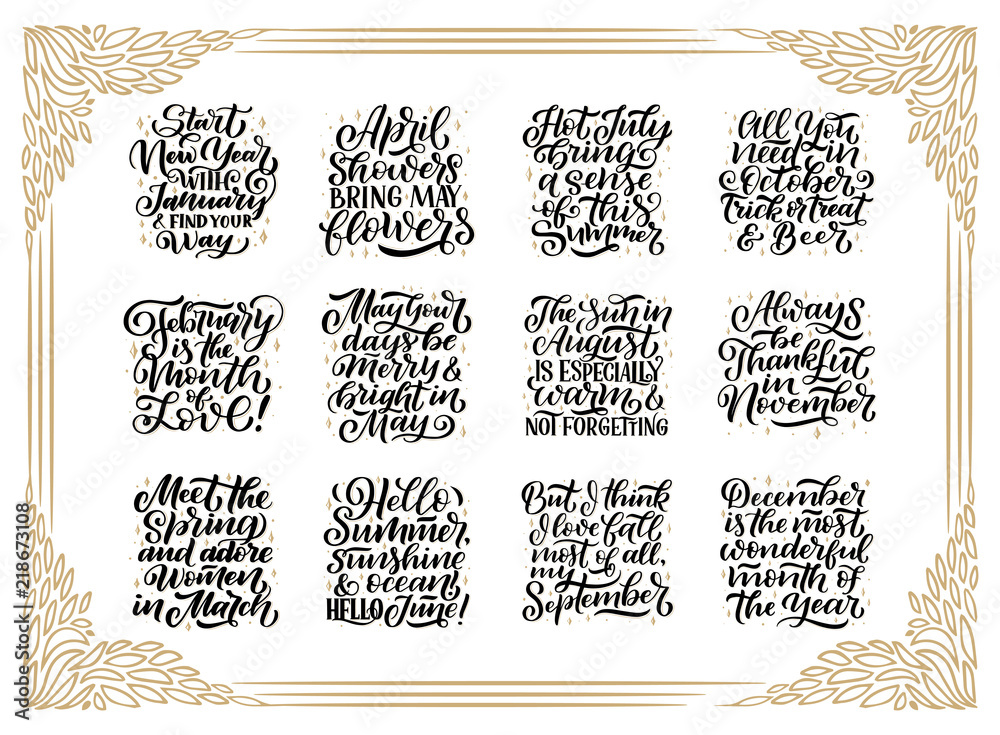 Start
New Year
WITH
January
& FIND YOUR
Way
April
Showers
BRING MAY
flowers
Hot July
bring
a sense
of this
Summer
All You
need in
October
Trick or treat
& Beer
February
is the
Month
of
Love!
May Your
days be
Merry &
bright in
May
The Sun in
August
IS ESPECIALLY
warm &
NOT FORGETTING
Always
be
Thankful
in
November
Meet the
Spring
and adore
Women
in March
Hello
Summer,
Sunshine
& ocean!
HELLO June!
But I think
I love fall
most of all,
my
September
December
is the most
wonderful
month of
the Year
Adobe Stock | #218673108